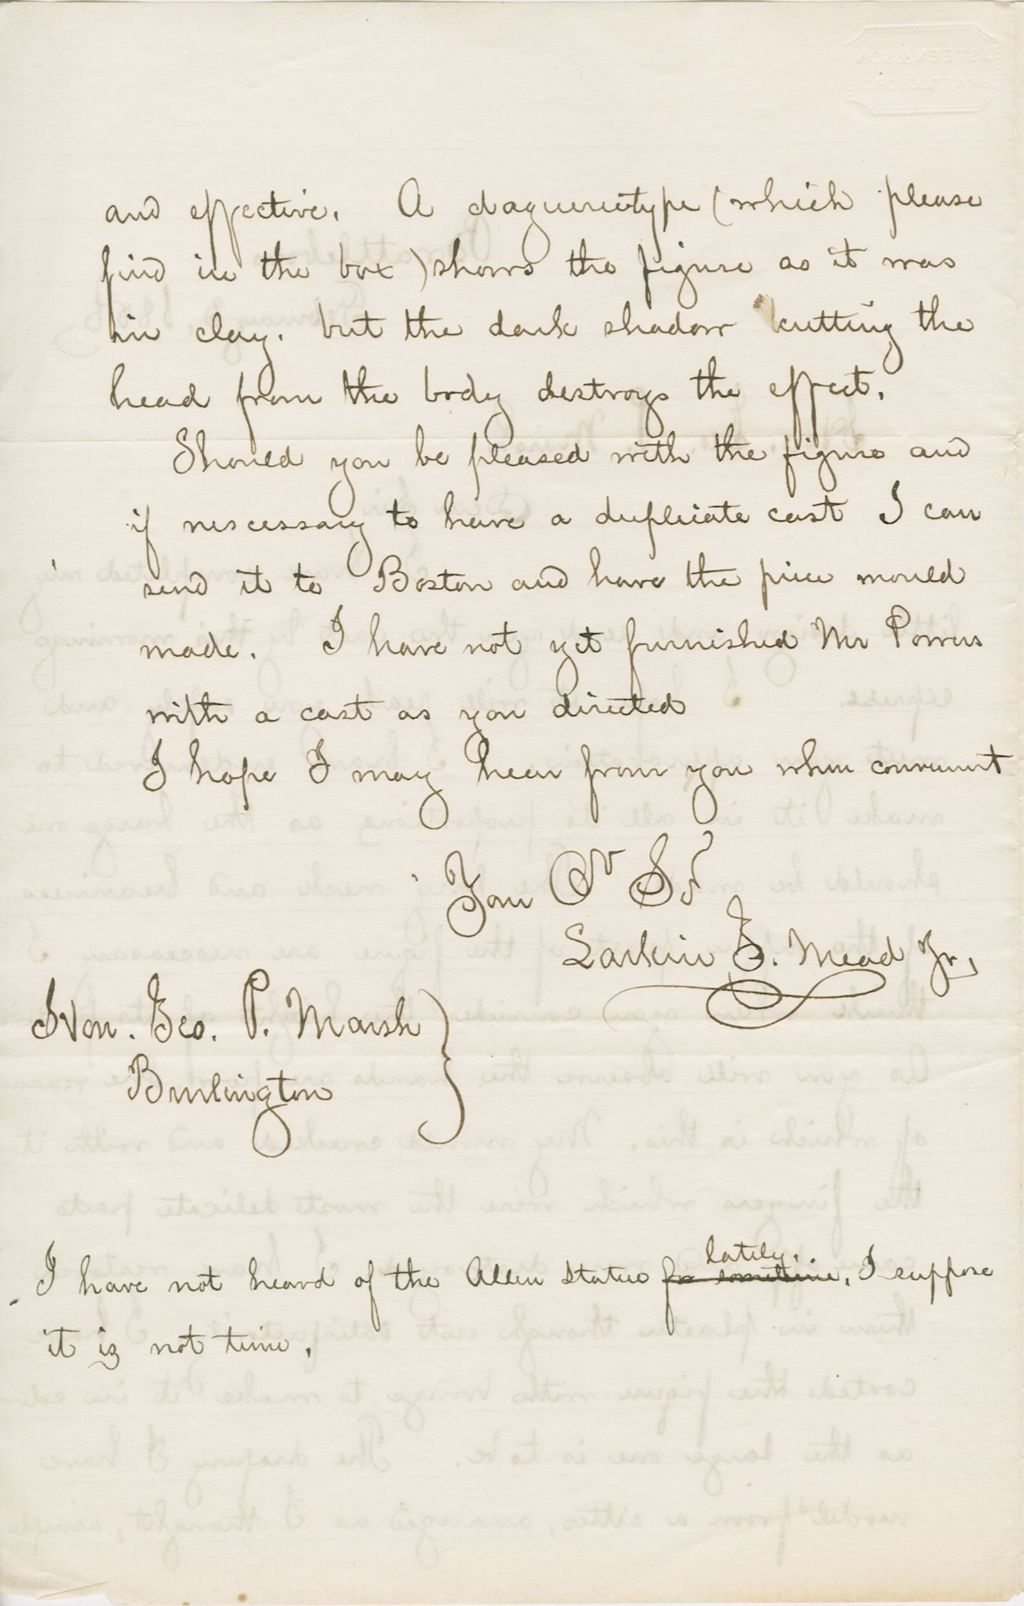 and effective. A daguereotype (which please
find in the box) shows the figure as it was
in clay. but the dark shadow kutting the
head from the body destroys the effect.
Should you be pleased with the figure and
if nescessary to have a duplicate cast I can
send it to Boston and have the piece mould
made. I have not yet furnished Mr Powers
with a cast as you directed
I hope I may hear from you when convenient
Your Ob Sr
Larkin G. Mead Jr,
Hon. Geo. P. Marsh
Burlington
lately.
I have not heard of the Allen Statue for sometime, I suppose
it is not time.